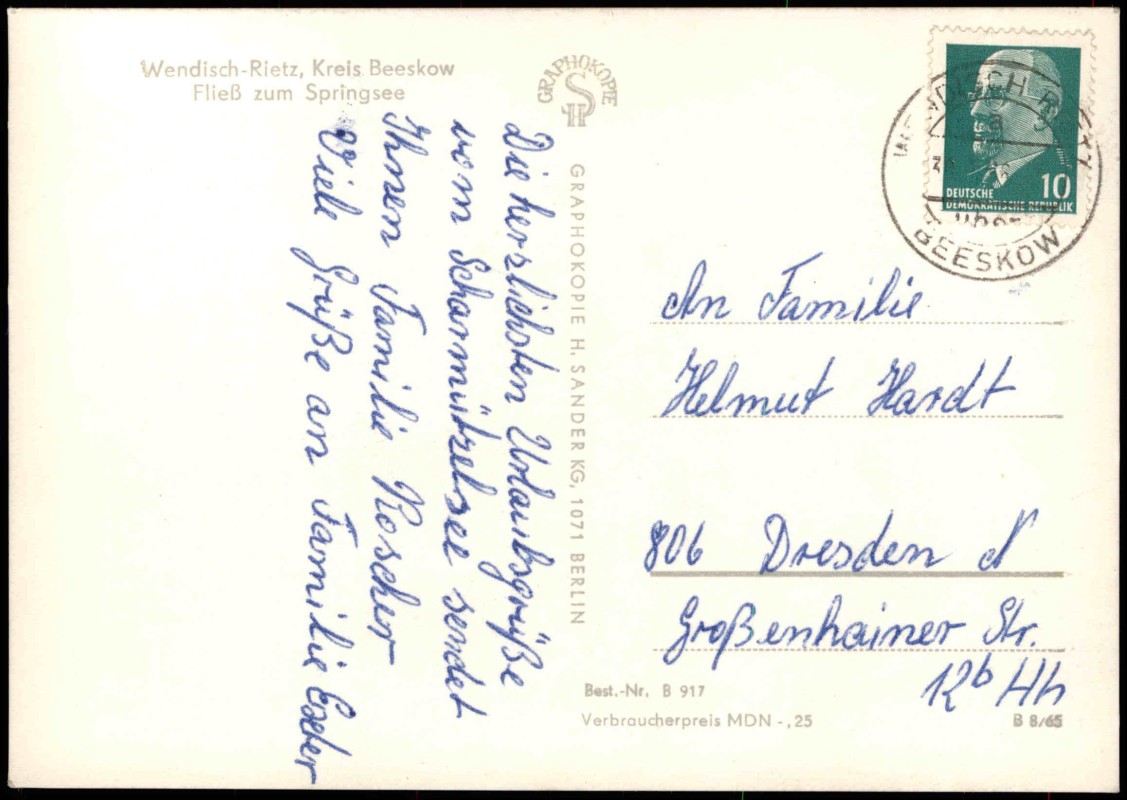 Wendisch-Rietz, Kreis Beeskow
Fließ zum Springsee
GRAPHOKOPIE
HS
GRAPHOKOPIE H. SANDER KG, 1071 BERLIN
Die herzlichsten Urlaubsgrüße
vom Scharmützelsee sendet
Ihnen Familie Roscher
Viele Grüße an Familie
DEUTSCHE
DEMOKRATISCHE REPUBLIK
10
BEESKOW
An Familie
Helmut Hardt
806 Dresden N
Großenhainer Str.
12b Hh
Best.-Nr. B 917
Verbraucherpreis MDN -,25
B 8/65